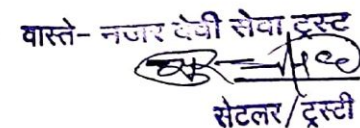 वास्ते- नजर देवी सेवा ट्रस्ट
सेटलर/ट्रस्टी